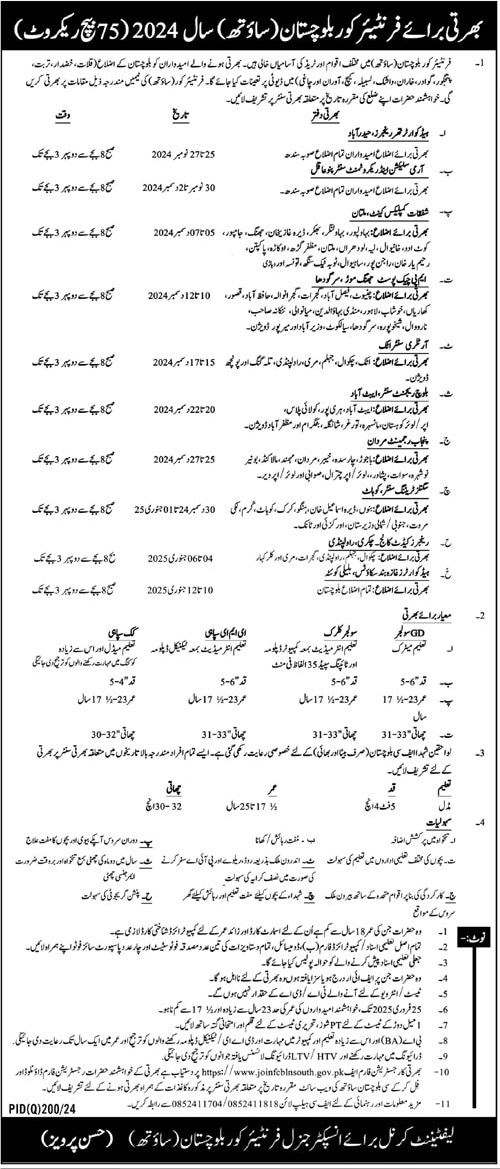 بھرتی برائے فرنٹیئر کور بلوچستان (ساؤتھ) سال 2024 (75 بیچ ریکروٹ)
1- فرنٹیئر کور بلوچستان (ساؤتھ) میں مختلف اقوام اور ٹریڈ کی آسامیاں خالی ہیں۔ بھرتی ہونے والے امیدواران کو بلوچستان کے اضلاع (قلات، خضدار، تربت،
پنجگور، گوادر، خاران، واشک، لسبیلہ، کیچ، آوران اور چاغی) میں ڈیوٹی پر تعینات کیا جائے گا۔ فرنٹیئر کور (ساؤتھ) کی ٹیمیں مندرجہ ذیل مقامات پر بھرتی کریں
گی۔ خواہشمند حضرات اپنے ضلع کی مقررہ تاریخ پر متعلقہ بھرتی سنٹر پر تشریف لائیں۔
بھرتی دفتر تاریخ وقت
ا۔ ہیڈ کوارٹر تھر رینجرز، حیدرآباد
بھرتی برائے اضلاع امیدواران تمام اضلاع صوبہ سندھ 25 تا 27 نومبر 2024 صبح 8 بجے سے دوپہر 3 بجے تک
ب۔ آرمی سلیکشن اینڈ ریکروٹمنٹ سنٹر پنوعاقل
بھرتی برائے اضلاع امیدواران تمام اضلاع صوبہ سندھ۔ 30 نومبر تا 2 دسمبر 2024 صبح 8 بجے سے دوپہر 3 بجے تک
پ۔ شفقات کمپلیکس کینٹ، ملتان
بھرتی برائے اضلاع: بہاولپور، بہاولنگر، بھکر، ڈیرہ غازیخان، جھنگ، جامپور، 05 تا 07 دسمبر 2024 صبح 8 بجے سے دوپہر 3 بجے تک
کوٹ ادو، خانیوال، لیہ، لودھراں، ملتان، مظفر گڑھ، اوکاڑہ، پاکپتن،
رحیم یار خان، راجن پور، ساہیوال، ٹوبہ ٹیک سنگھ، تونسہ اور وہاڑی
ت۔ ایم پی چیک پوسٹ جھنگ موڑ، سرگودھا
بھرتی برائے اضلاع: چنیوٹ، فیصل آباد، گجرات، گجرانوالہ، حافظ آباد، قصور، 10 تا 12 دسمبر 2024 صبح 8 بجے سے دوپہر 3 بجے تک
کھاریاں، خوشاب، لاہور، منڈی بہاؤالدین، میانوالی، ننکانہ صاحب،
نارووال، شیخوپورہ، سرگودھا، سیالکوٹ، وزیر آباد اور میرپور ڈویژن۔
ٹ۔ آرٹلری سنٹر اٹک
بھرتی برائے اضلاع: اٹک، چکوال، جہلم، مری، راولپنڈی، تلہ گنگ اور پونچھ 15 تا 17 دسمبر 2024 صبح 8 بجے سے دوپہر 3 بجے تک
ڈویژن۔
ث۔ بلوچ رجمنٹ سنٹر، ایبٹ آباد
بھرتی برائے اضلاع: ایبٹ آباد، ہری پور، کولائی پلاس، 20 تا 22 دسمبر 2024 صبح 8 بجے سے دوپہر 3 بجے تک
اپر/لوئر کوہستان، مانسہرہ، تورغر، شانگلہ، بٹگرام اور مظفر آباد ڈویژن۔
ج۔ پنجاب رجمنٹ مردان
بھرتی برائے اضلاع: باجوڑ، چارسدہ، خیبر، مردان، مہمند، مالاکنڈ، بونیر 25 تا 27 دسمبر 2024 صبح 8 بجے سے دوپہر 3 بجے تک
نوشہرہ، سوات، پشاور، لوئر/اپر چترال، صوابی اور لوئر/اپر دیر۔
چ۔ سگنلز ٹریننگ سنٹر، کوہاٹ
بھرتی برائے اضلاع: بنوں، ڈیرہ اسماعیل خان، ہنگو، کرک، کوہاٹ، کرم، لکی 30 دسمبر 24 تا 01 جنوری 25 صبح 8 بجے سے دوپہر 3 بجے تک
مروت، جنوبی/شمالی وزیرستان، اورکزئی اور ٹانک۔
ح۔ رینجرز کیڈٹ کالج، چکری، راولپنڈی
بھرتی برائے اضلاع: چکوال، جہلم، راولپنڈی، گجرات، مری اور کلر کہار 04 تا 06 جنوری 2025 صبح 8 بجے سے دوپہر 3 بجے تک
خ۔ ہیڈ کوارٹرز غازہ بند سکاؤٹس، بلیلی کوئٹہ
بھرتی برائے اضلاع: تمام اضلاع بلوچستان 10 تا 12 جنوری 2025 صبح 8 بجے سے دوپہر 3 بجے تک
2- معیار برائے بھرتی
GD سولجر سولجر کلرک ای ایم ای سپاہی کک سپاہی
ا۔ تعلیم میٹرک تعلیم انٹرمیڈیٹ بمعہ کمپیوٹر ڈپلومہ تعلیم انٹرمیڈیٹ بمعہ ٹیکنیکل ڈپلومہ تعلیم مڈل اور اس سے زیادہ
اور ٹائپنگ سپیڈ 35 الفاظ فی منٹ کوکنگ میں مہارت رکھنے والوں کو ترجیح دی جائیگی
ب۔ قد "6-5 قد "6-5 قد "6-5 قد "4-5
پ۔ عمر 23-½ 17 عمر 23-½ 17 سال عمر 23-½ 17 سال عمر 23-½ 17 سال
سال
ت۔ چھاتی "33-31 چھاتی "33-31 چھاتی "33-31 چھاتی "32-30
3- لواحقین شہدا ایف سی بلوچستان (صرف بیٹا اور بھائی) کے لئے خصوصی رعایت رکھی گئی ہے۔ ایسے تمام افراد مندرجہ بالا تاریخوں میں متعلقہ بھرتی سنٹر پر بھرتی
کے لئے تشریف لائیں۔
تعلیم قد عمر چھاتی
مڈل 5 فٹ 4 انچ ½ 17 تا 25 سال 32-30 انچ
4- سہولیات
ا۔ تنخواہ میں پرکشش اضافہ ب۔ مفت رہائش/کھانا پ۔ دوران سروس آپکے بیوی اور بچوں کا مفت علاج
ت۔ بچوں کی مختلف تعلیمی اداروں میں تعلیم کی سہولت ٹ۔ اندرون ملک بذریعہ روڈ، ریلوے اور پی آئی اے سفر کرنے ث۔ سال میں دو ماہ کی چھٹی بمع تنخواہ اور بوقت ضرورت
کی صورت میں نصف کرایہ کی سہولت ایمرجنسی چھٹی
ج۔ کارکردگی کی بنا پر اقوام متحدہ کے ساتھ بیرون ملک چ۔ شہداء کے بچوں کیلئے مفت تعلیم اور رہائش کیلئے گھر ح۔ پنشن گریجوئٹی کی سہولت
سروس کے مواقع
نوٹ:-
1- وہ حضرات جن کی عمر 18 سال سے کم ہے اُن کے لئے اسمارٹ کارڈ اور زائد عمر کے لئے کمپیوٹرائزڈ شناختی کارڈ لازمی ہے۔
2- تمام اصل تعلیمی اسناد/کمپیوٹرائزڈ فارم (ب)، ڈومیسائل، تمام دستاویزات کی تین عدد مصدقہ فوٹو سٹیٹ اور چار عدد پاسپورٹ سائز فوٹو اپنے ہمراہ لائیں۔
3- جعلی تعلیمی اسناد پیش کرنے والے کو حوالہ پولیس کیا جائے گا۔
4- وہ حضرات جن پر ایف آئی آر درج ہو یا سزا یافتہ ہوں وہ بھرتی کے لئے نااہل ہوگا۔
5- ٹیسٹ/انٹرویو کے لئے آنے والے ٹی اے/ڈی اے کے حقدار نہیں ہوں گے۔
6- 25 فروری 2025 تک، خواہشمند امیدواروں کی عمر کی حد 23 سال سے زیادہ اور ½ 17 سے کم نا ہو۔
7- 1 میل دوڑ کے ٹیسٹ کے لئے PT شوز، تحریری ٹیسٹ کے لئے قلم اور امتحانی گتہ ساتھ لائیں۔
8- بی اے (BA) اور اس سے زیادہ تعلیم اور کمپیوٹر میں مہارت اور ڈی اے ای/ٹیکنیکل ڈپلومہ رکھنے والوں کو ترجیح اور عمر میں ایک سال تک رعایت دی جائیگی۔
9- ڈرائیونگ میں مہارت رکھنے اور LTV / HTV ڈرائیونگ لائسنس یافتہ جوانوں کو ترجیح دی جائیگی۔
10- بھرتی کا رجسٹریشن فارم ایف سی https://www.joinfcblnsouth.gov.pk پر دستیاب ہے بھرتی کے خواہشمند حضرات رجسٹریشن فارم ڈاؤنلوڈ اور
فل کر کے سی بلوچستان ساؤتھ کی ویب سائٹ مقررہ تاریخ پر متعلقہ بھرتی سنٹر پر مذکورہ کاغذات کے ہمراہ بھرتی ہونے کے لئے تشریف لائیں۔
11- مزید معلومات اور رہنمائی کے لئے ایف سی ہیلپ لائن 0852411818/0852411704 سے رابطہ کریں۔
PID(Q)200/24
لیفٹیننٹ کرنل برائے انسپکٹر جنرل فرنٹیئر کور بلوچستان (ساؤتھ) (حسن پرویز)